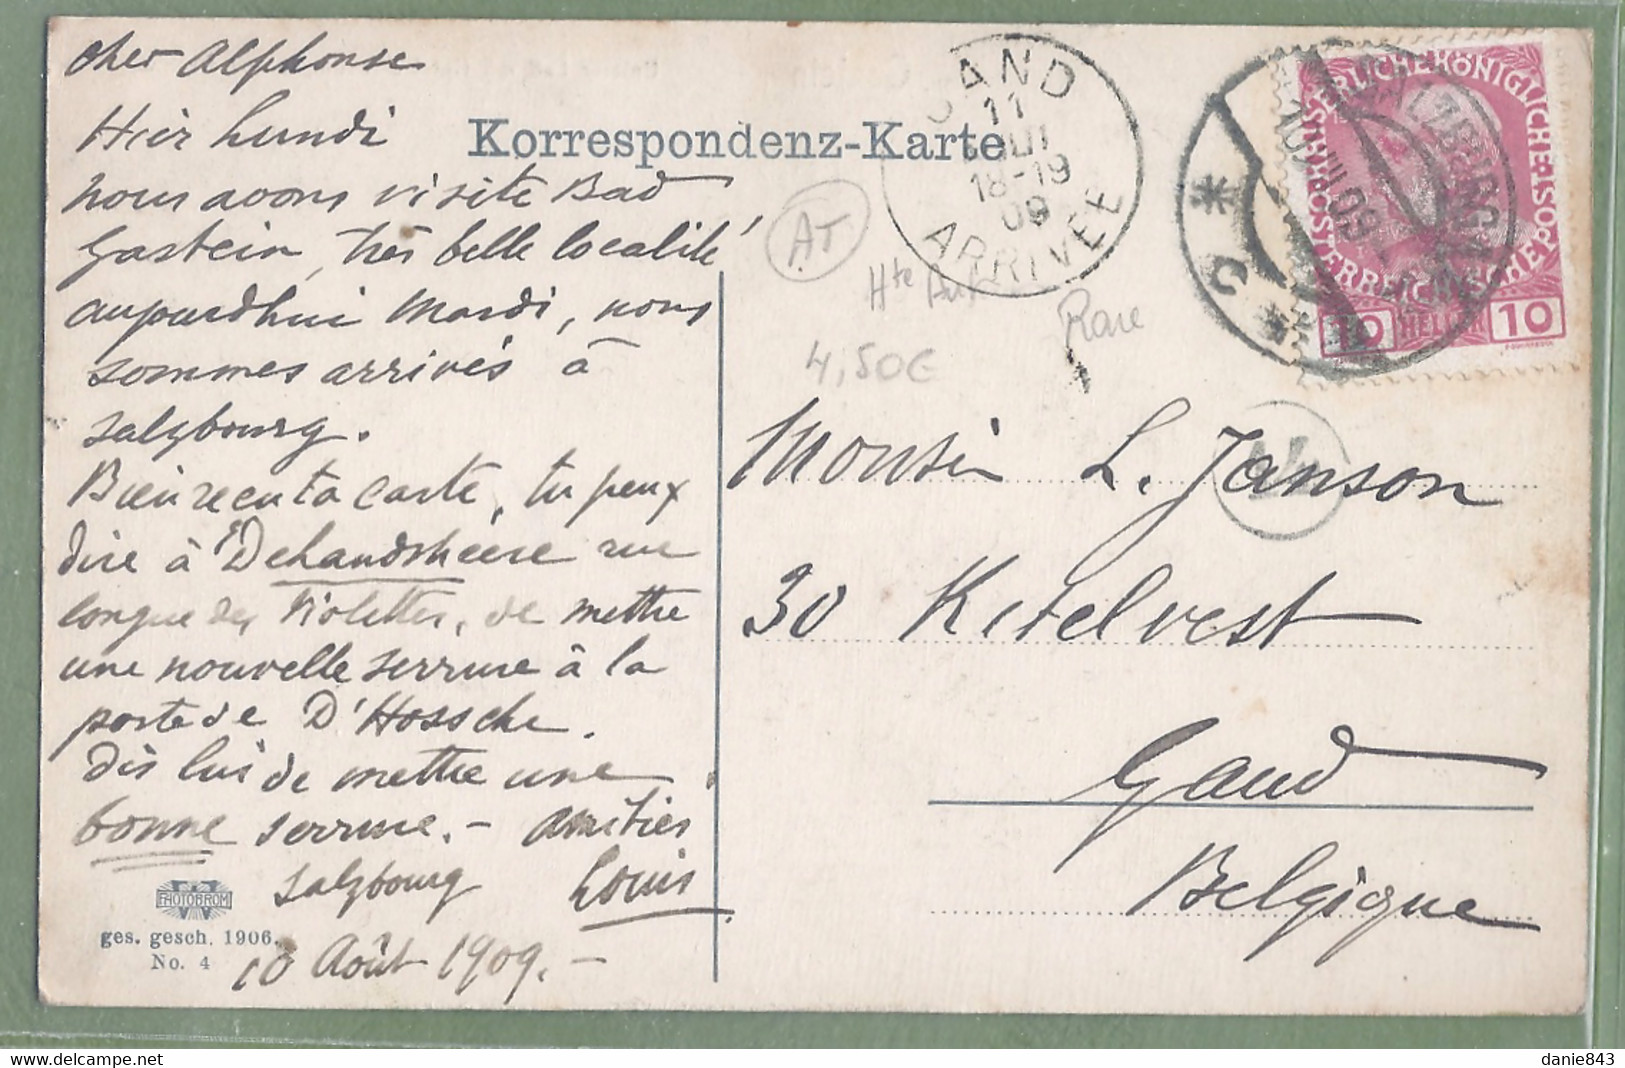 cher Alphonse
Hier Lundi
nous avons visité Bad
Gastein, très belle localité
aujourdhui Mardi, nous
sommes arrivés à
Salzbourg.
Bien recu ta carte, tu peux
dire à Dehandscheere rue
longue des Violettes, de mettre
une nouvelle serrure à la
porte de D'Hossche.
dis lui de mettre une
bonne serrure. - Amitiés
Salzbourg Louis
10 Août 1909. -
PHOTOBROM
ges. gesch. 1906.
No. 4
Korrespondenz-Karte
GAND
11
18-19
09
ARRIVEE
AT
Hte Aut
Rare
4,50€
SALZBURG
10 VIII 09
C
KAISERLICHE KÖNIGLICHE POST
ÖSTERREICHISCHE
10 HELLER 10
Monsieur L. Janson
30 Kitelvest
Gand
Belgique
danie843